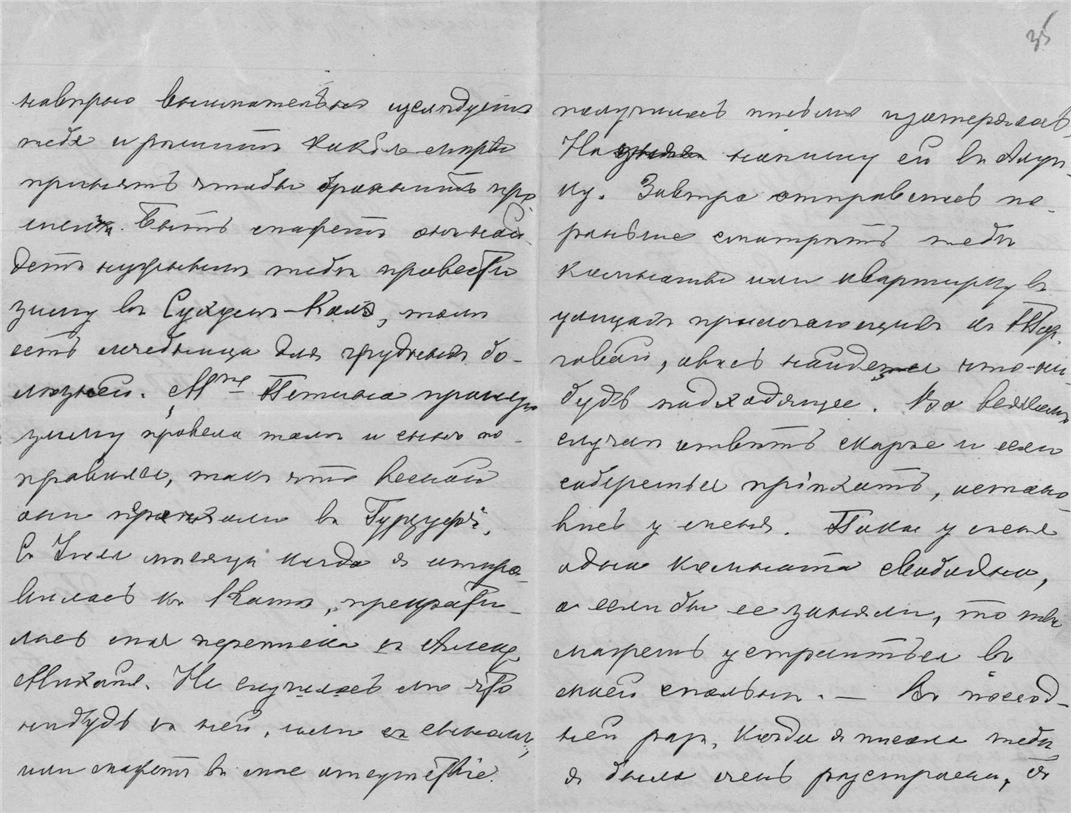 35
навѣрно внимательно изслѣдуетъ
тебя и рѣшитъ какія мѣры
принять чтобы
Быть можетъ онъ най-
детъ нужнымъ тебѣ провести
зиму въ Сухумъ-Кале, тамъ
есть лечебница для грудныхъ бо-
лѣзней. Mme Петина прошлую
зиму провела тамъ и сынъ по-
правился, такъ что весной
они пріѣхали въ Гурзуфъ.
Съ Іюля мѣсяца когда я отпра-
вилась къ Катѣ, прекрати-
лась моя переписка съ Алекс.
Михайл. Не случилось ли что
нибудь съ ней, или съ сыномъ,
или можетъ въ мое отсутствіе
получилось письмо и затерялось.
На напишу ей въ Алуп-
ку. Завтра отправлюсь по-
раньше смотрѣть тебѣ
комнаты или квартирку въ
улицахъ прилегающихъ къ Тор-
говой, авось найдется что-ни-
будь подходящее. Во всякомъ
случаѣ отвѣть скорѣе и если
соберешься пріѣхать, остано-
вись у меня. Пока у меня
одна комната свободна,
а если бы ее заняли, то ты
можешь устроиться въ
моей спальни. — Въ послѣд-
ній разъ, когда я писала тебѣ,
я была очень разстроена, я